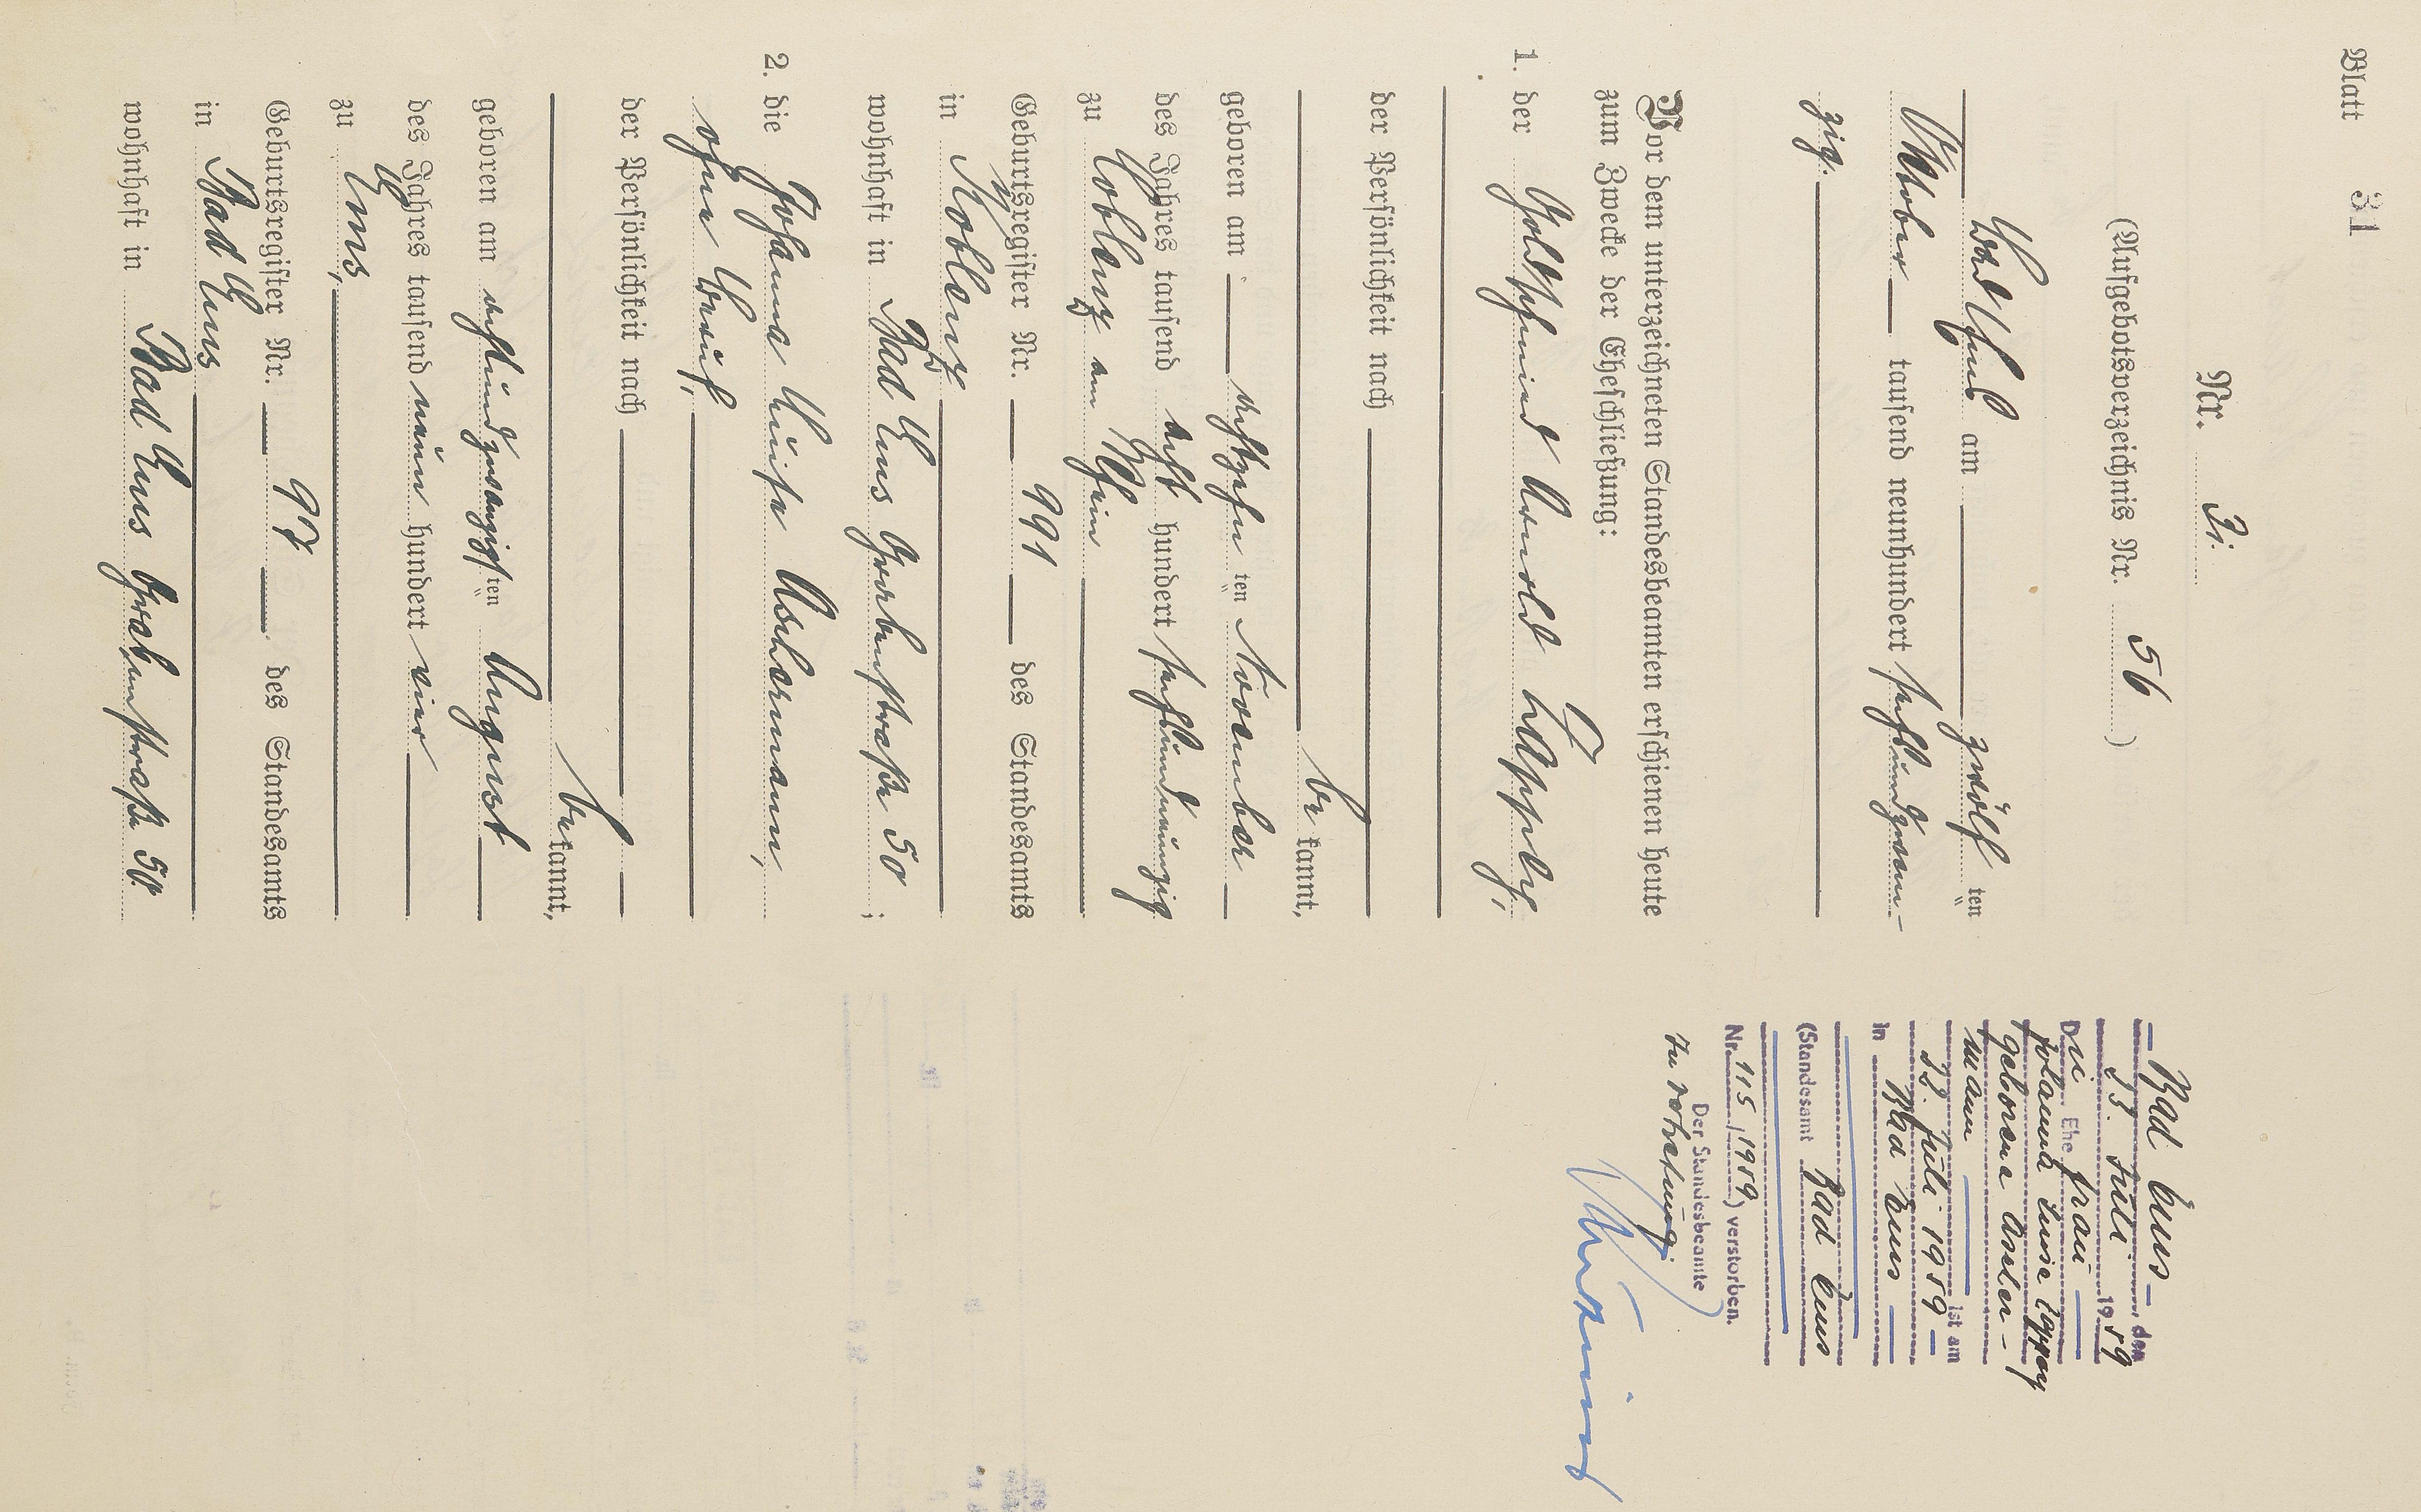 Blatt 31
Nr. 31.
(Aufgebotsverzeichnis Nr. 56)
Bad Ems am zwölf ten
Oktober tausend neunhundert sechsundzwan-
zig.
Vor dem unterzeichneten Standesbeamten erschienen heute
zum Zwecke der Eheschließung:
1. der Goldschmied Arnold
der Persönlichkeit nach
be kannt,
geboren am achtzehn ten November
des Jahres tausend acht hundert sechsundneunzig
zu Coblenz am Rhein
Geburtsregister Nr. 991 des Standesamts
in Koblenz
wohnhaft in Bad Ems Grabenstraße 50;
2. die Johanna Luise Aschermann,
ohne Beruf,
der Persönlichkeit nach
be kannt,
geboren am achtundzwanzigsten August
des Jahres tausend neun hundert vier
zu Ems,
Geburtsregister Nr. 97 des Standesamts
in Bad Ems
wohnhaft in Bad Ems Grabenstraße 50.
Bad Ems, den
23. Juli 1959
Die Ehefrau
Johanna Luise
geborene Ascher-
mann ist am
22. Juli 1959
in Bad Ems
(Standesamt Bad Ems
Nr. 115/1959) verstorben.
Der Standesbeamte
In Vertretung: